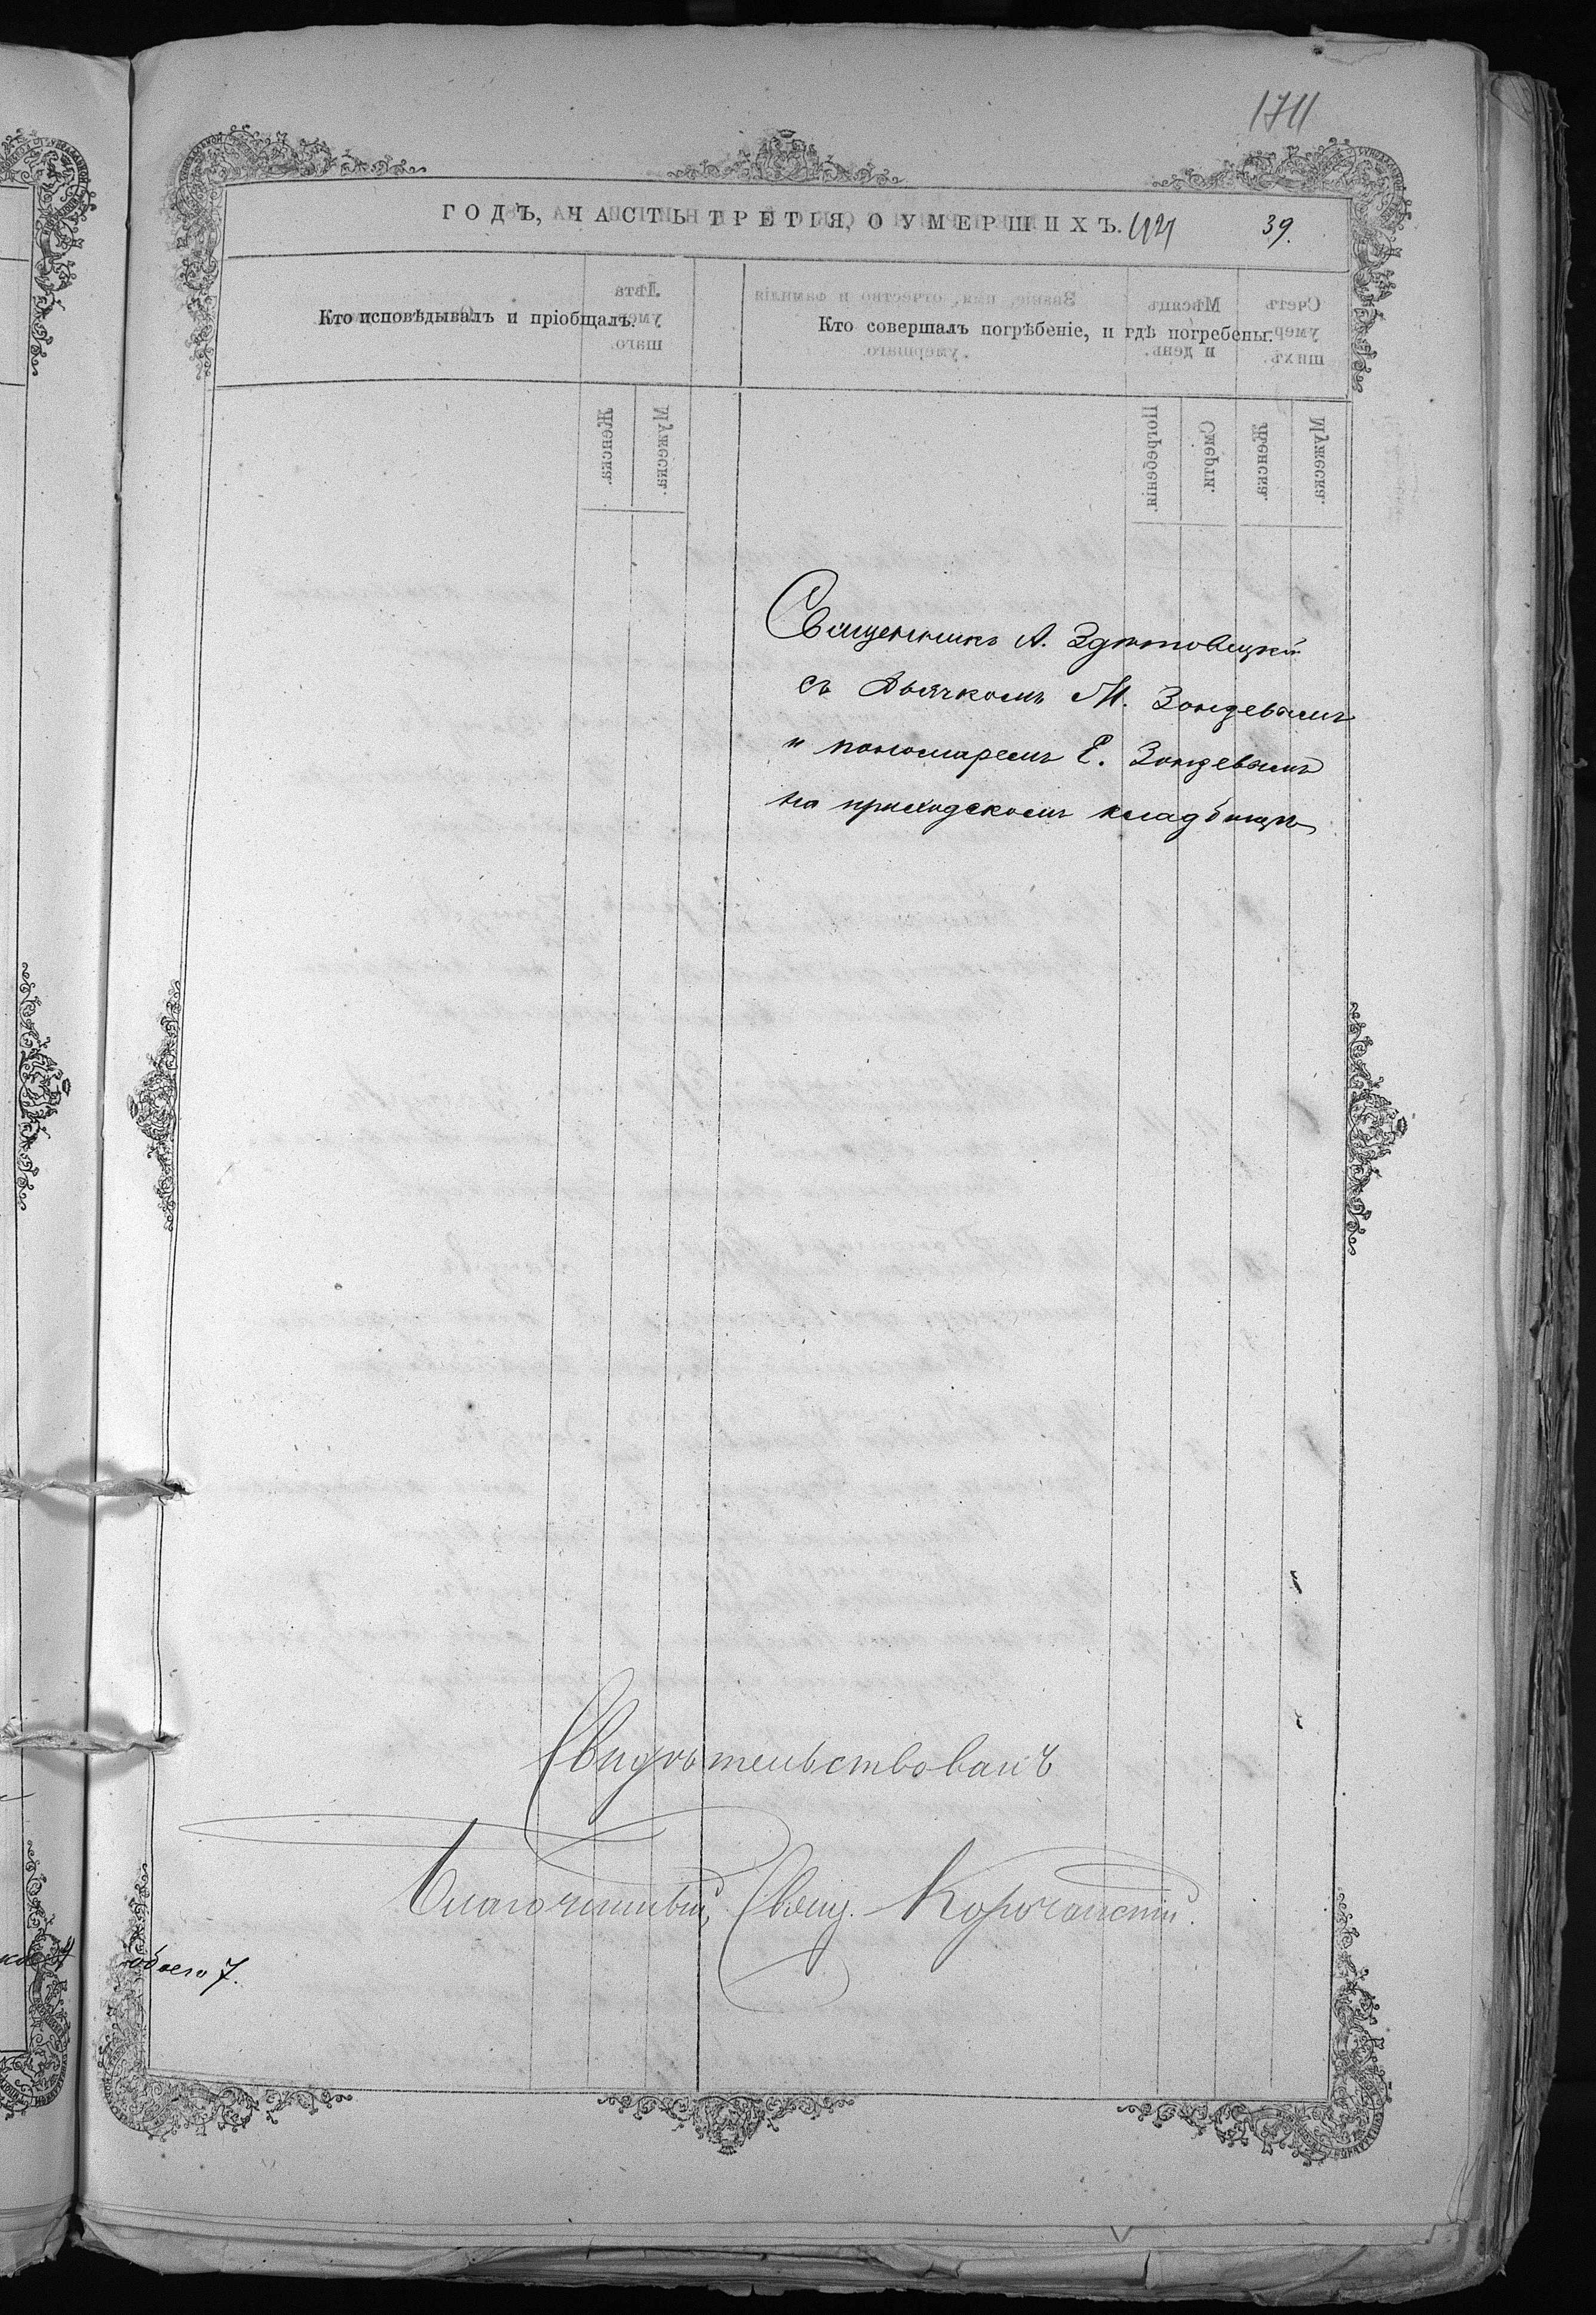 1711
ГОДЪ, ЧАСТЬ ТРЕТІЯ, О УМЕРШИХЪ.
39.
Кто исповѣдывалъ и пріобщалъ.
Кто совершалъ погрѣбеніе, и гдѣ погребены.
Священникъ А. Здѣтовецкій
съ Дьячкомъ М. Зондевымъ
и пономаремъ Е. Зондевымъ
на приходскомъ кладбищѣ
Свидѣтельствовалъ
Благочинный, Свящ. Корочанскій.
обоего 7.